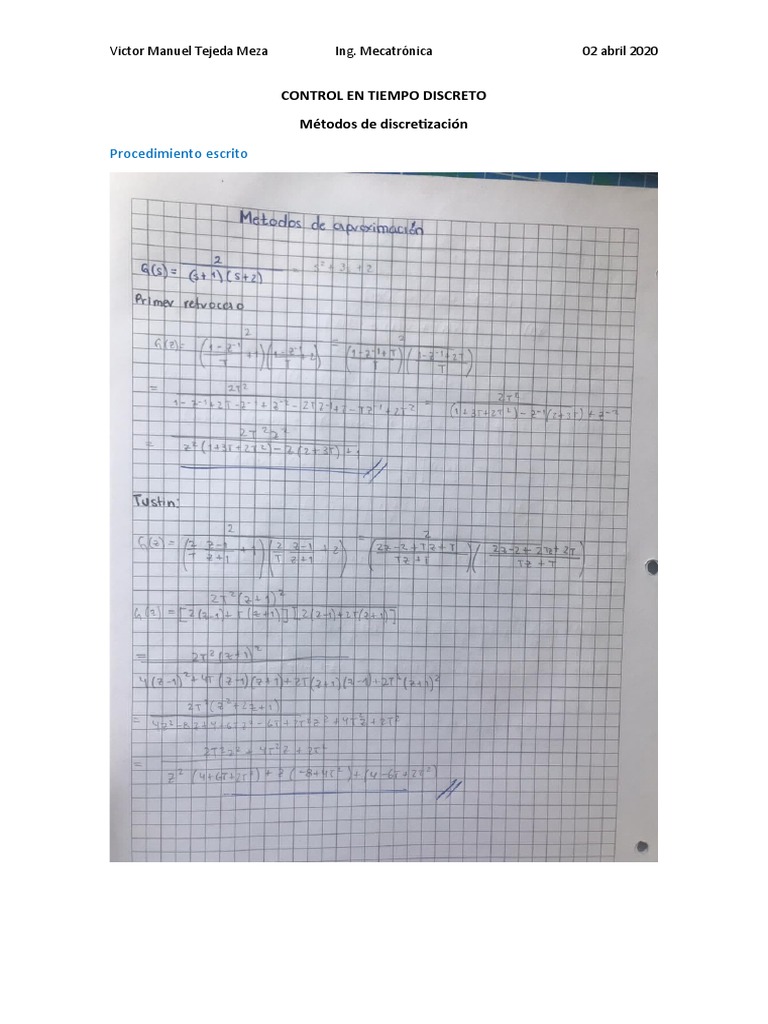 Victor Manuel Tejeda Meza Ing. Mecatrónica 02 abril 2020
CONTROL EN TIEMPO DISCRETO
Métodos de discretización
Procedimiento escrito
Metodos de aproximación
G(s) = 2 / (s+1)(s+2) = s²+3s+2
Primer retroceso
G(z) = 2 / ((1-z⁻¹)/T + 1)((1-z⁻¹)/T + 2) = 2 / ((1-z⁻¹+T)/T)((1-z⁻¹+2T)/T)
= 2T² / 1-z⁻¹+2T-z⁻¹+z⁻²-2Tz⁻¹+T-Tz⁻¹+2T² = 2T² / (1+3T+2T²)-z⁻¹(2+3T)+z⁻²
= 2T²z² / z²(1+3T+2T²)-z(2+3T)+1
Tustin:
G(z) = 2 / (2/T (z-1)/(z+1) + 1)(2/T (z-1)/(z+1) + 2) = 2 / ((2z-2+Tz+T)/(Tz+1))((2z-2+2Tz+2T)/(Tz+T))
G(z) = 2T²(z+1)² / [2(z-1)+T(z+1)][2(z-1)+2T(z+1)]
= 2T²(z+1)² / 4(z-1)²+4T(z-1)(z+1)+2T(z+1)(z-1)+2T²(z+1)²
= 2T²(z²+2z+1) / 4z²-8z+4+6Tz²-6T+2T²z²+4T²z+2T²
= 2T²z²+4T²z+2T² / z²(4+6T+2T²)+z(-8+4T²)+(4-6T+2T²)